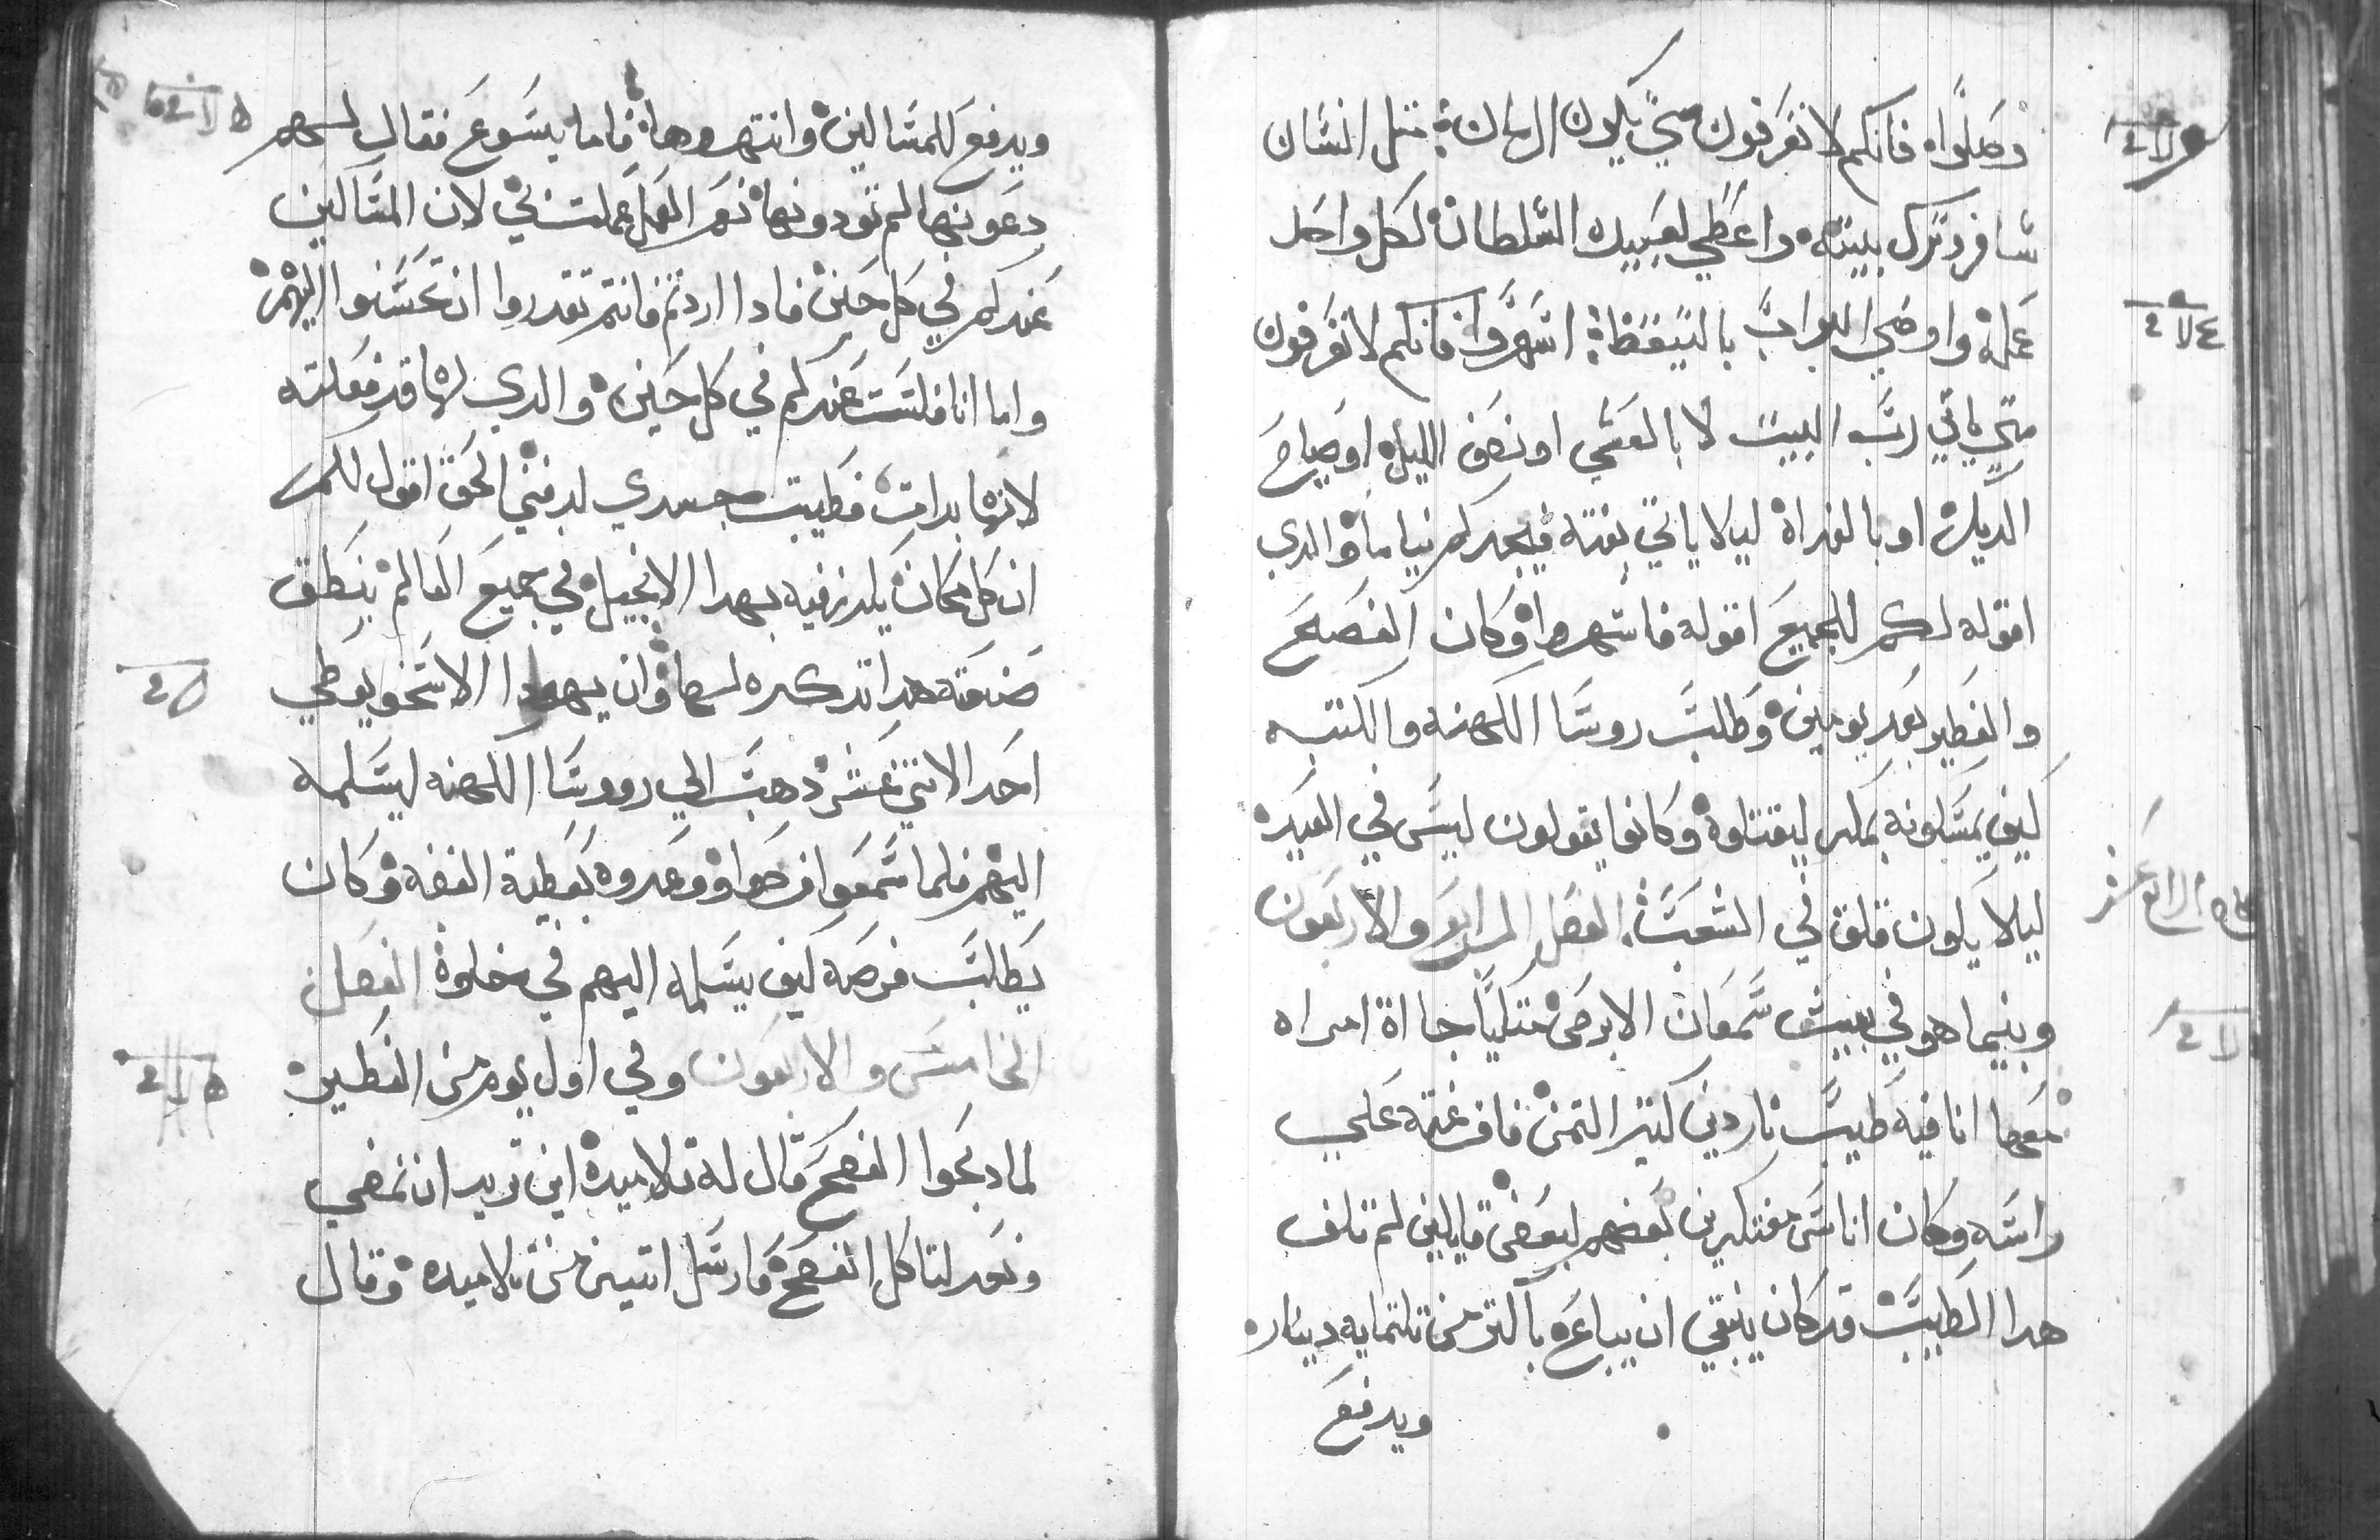 وصلوا فانكم لا تعرفون متي يكون الزمان مثل انسان
سافر وترك بيته واعطي لعبيده السلطان لكل واحد
عمله واوصي البواب باليقظة اسهروا فانكم لا تعرفون
متي ياتي رب البيت لا بالعشي او نصف الليل او صياح
الديك او بالغداة ليلا ياتي بغتة فيجدكم نياما والدي
اقوله لكم للجميع اقوله فاسهروا وكان الفصح
والفطير بعد يومين وطلب روسا الكهنه والكتبه
كيف يمسكونه بمكر ليقتلوه وكانوا يقولون ليس في العيد
ليلا يكون قلق في الشعب الفصل الرابع والاربعون
وبنيما هو في بيت سمعان الابرص متكيا جاات امراه
معها انا فيه طيب ناردين كتير التمن فافرغته علي
راسه وكان اناس مفتكرين بعضهم لبعض قايلين لم تلف
هدا الطيب قد كان ينبغي ان يباع باكتر من تلتمايه دينار
ويدفع
ويدفع للمساكين وانتهروها فاما يسوع فقال لهم
دعونها لم تودونها نعم العمل عملت في لان المساكين
عندكم في كل حين فادا اردتم فانتم تقدروا ان تحسنوا اليهم
واما انا فلست عندكم في كل حين والدي لها قد فعلته
لانها بدات فطيبت جسدي لدفني الحق اقول لكم
ان كل مكان يكرز فيه بهدا الانجيل في جميع العالم ينطق
صنعته هدا تدكره لها وان يهودا الاسخريوطي
احد الاتني عشر دهب الي رووسا الكهنه ليسلمه
اليهم فلما سمعوا فرحوا ووعدوه بعطية الفضه وكان
يطلب فرصه كيف يسلمه اليهم في خلوة الفصل
الخامس والاربعون وفي اول يوم من الفطير
لما دبحوا الفصح قال له تلاميده اين تريد ان نمضي
ونعد لتاكل الفصح فارسل اتنين من تلاميده وقال